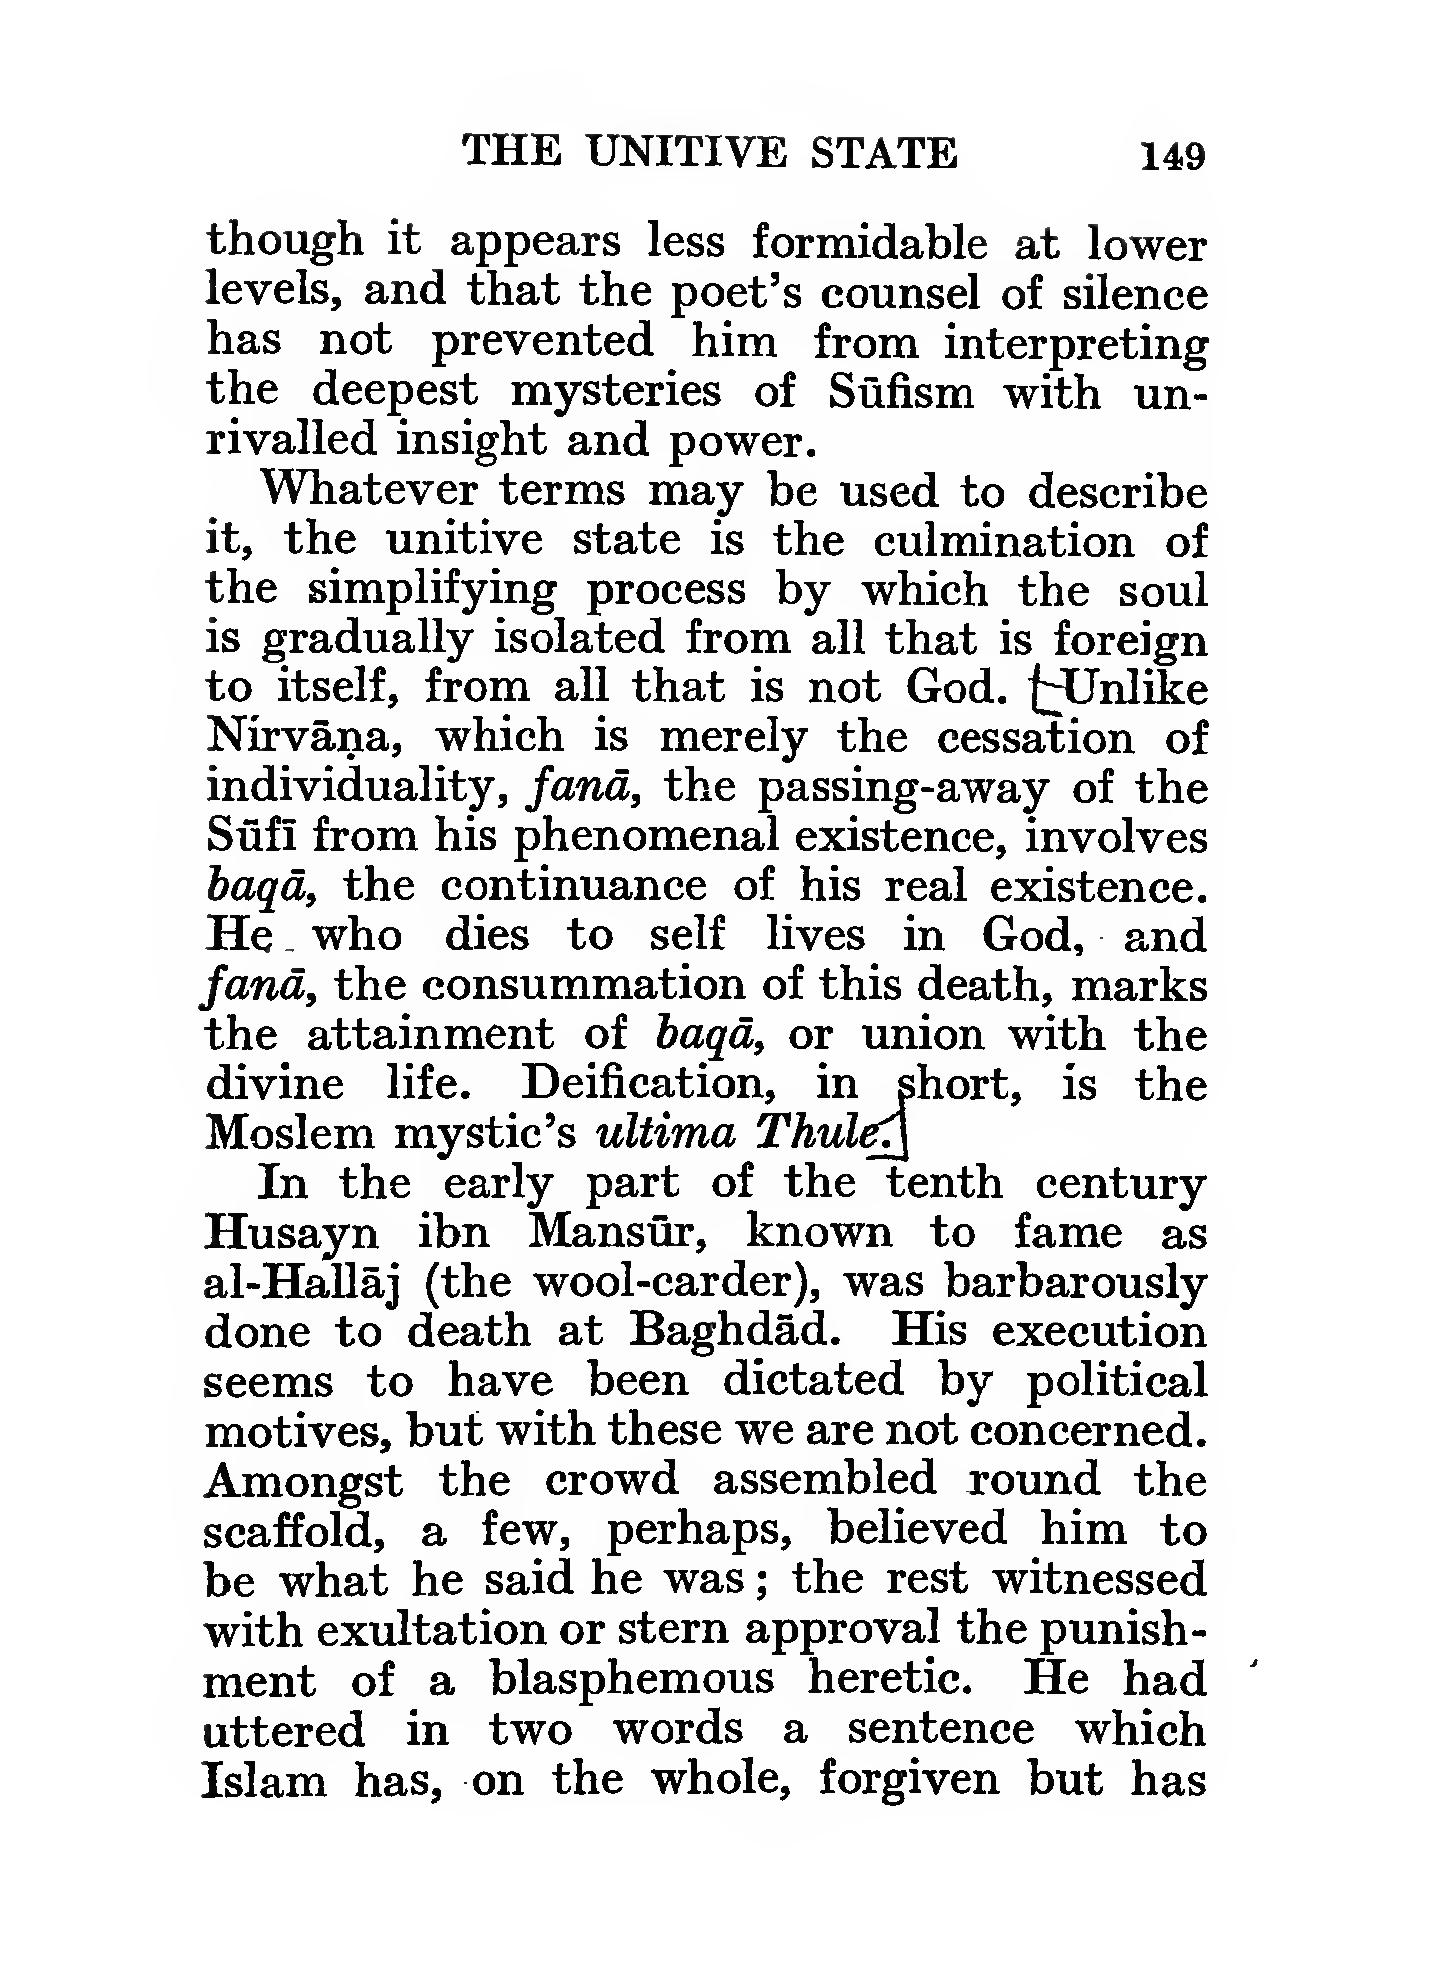 THE UNITIVE STATE 149
though it appears less formidable at lower
levels, and that the poet's counsel of silence
has not prevented him from interpreting
the deepest mysteries of Sūfism with un-
rivalled insight and power.
Whatever terms may be used to describe
it, the unitive state is the culmination of
the simplifying process by which the soul
is gradually isolated from all that is foreign
to itself, from all that is not God. Unlike
Nirvāṇa, which is merely the cessation of
individuality, fanā, the passing-away of the
Sūfī from his phenomenal existence, involves
baqā, the continuance of his real existence.
He who dies to self lives in God, and
fanā, the consummation of this death, marks
the attainment of baqā, or union with the
divine life. Deification, in short, is the
Moslem mystic's ultima Thule.
In the early part of the tenth century
Husayn ibn Mansūr, known to fame as
al-Hallāj (the wool-carder), was barbarously
done to death at Baghdād. His execution
seems to have been dictated by political
motives, but with these we are not concerned.
Amongst the crowd assembled round the
scaffold, a few, perhaps, believed him to
be what he said he was; the rest witnessed
with exultation or stern approval the punish-
ment of a blasphemous heretic. He had
uttered in two words a sentence which
Islam has, on the whole, forgiven but has